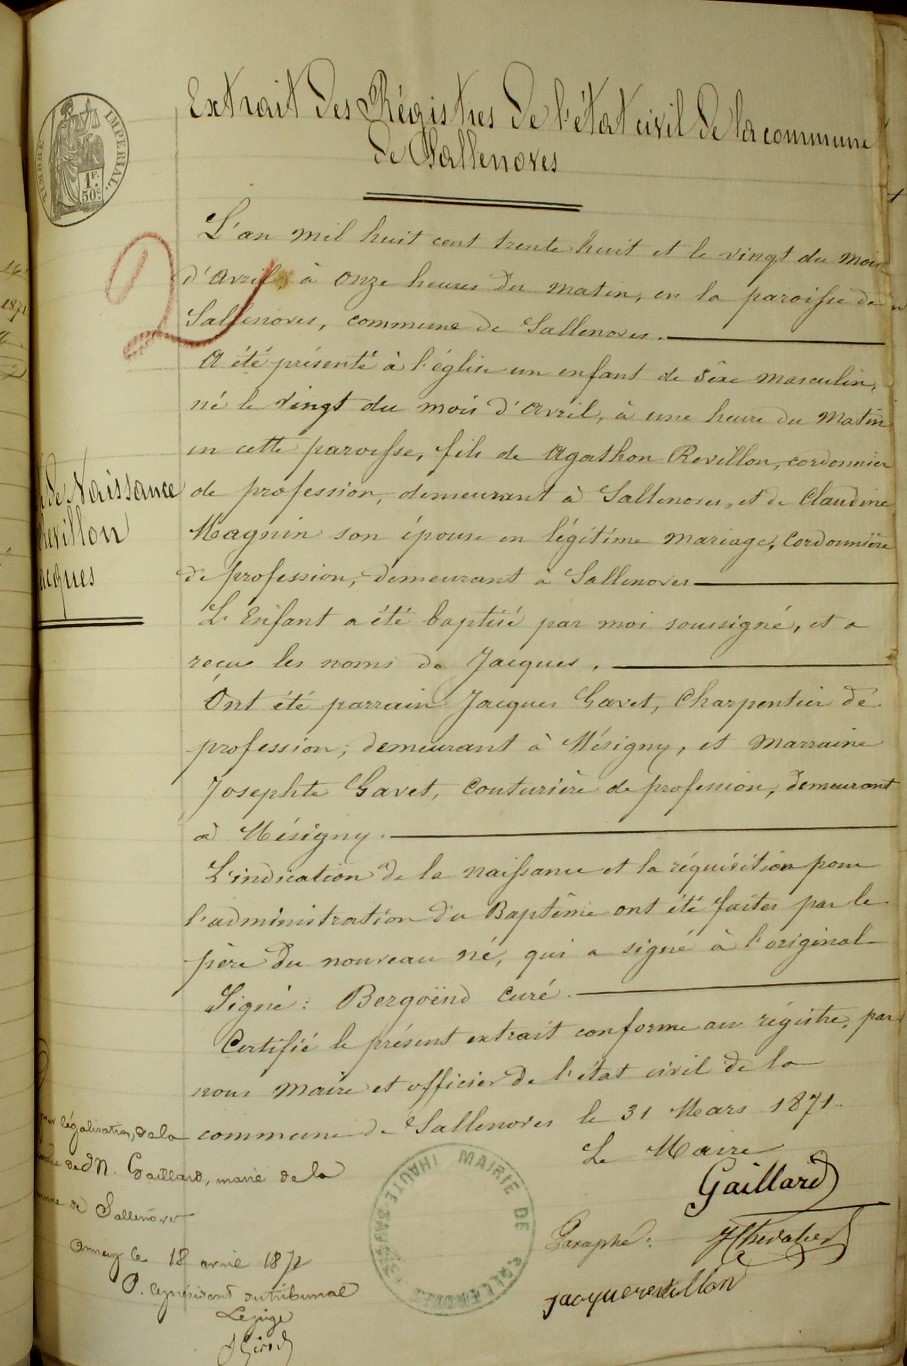 Extrait des Régistres de l'état civil de la commune
de Sallenoves
TIMBRE IMPERIAL
1F.
50c.
2
L'an mil huit cent trente huit et le vingt du mois
d'avril, à onze heures du matin, en la paroisse de
Sallenoves, commune de Sallenoves.
A été présenté à l'église un enfant de sèxe masculin,
né le vingt du mois d'avril, à une heure du matin
en cette paroisse, fils de Agathon Revillon, cordonnier
de profession, demeurant à Sallenoves, et de Claudine
Magnin son épouse en légitime mariage, cordonnière
de profession, demeurant à Sallenoves
L'Enfant a été baptisé par moi soussigné, et a
reçu les noms de Jacques.
Ont été parrain Jacques Gavet, Charpentier de
profession, demeurant à Mésigny, et marraine
Josephte Gavet, couturière de profession, demeurant
à Mésigny.
L'indication de la naissance et la réquisition pour
l'administration du Baptême ont été faites par le
père du nouveau né, qui a signé à l'original
Signé: Bergoënd curé.
Certifié le présent extrait conforme au régistre, par
nous Maire et officier de l'état civil de la
commune de Sallenoves le 31 Mars 1871
Le Maire
Gaillard
Paraphé: Chevalier
jacque revillon
de Naissance
Revillon
acques
légalisation, de la
de M. Gaillard, maire de la
de Sallenoves
Annecy le 18 avril 1871
P. le président du tribunal
Le juge
Girod
MAIRIE DE SALLENOVES
(HAUTE SAVOIE)
1871